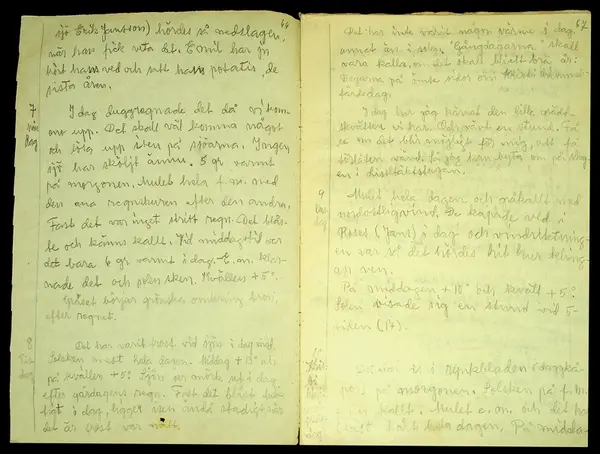 64
sjö Erik Jansson) hördes så nedslagen,
när han fick veta det. Emil har ju
kört hans ved och satt hans potatis, de
sista åren.
7
mån
dag
I dag duggregnade det då vi kom-
mo upp. Det skall väl komma något
och löta upp isen på sjöarna. Ingen
sjö har sköljt ännu. 5 gr varmt
på morgonen. Mulet hela f.m. med
den ena regnskuren efter den andra.
Fast det var inget stritt regn. Det blås-
te och känns kallt. Vid middagstid var
det bara 6 gr varmt i dag. E.m. klar-
nade det och solen sken. Kvällen +5°.
Gräset börjar grönska omkring bron,
efter regnet.
8
Tis
dag
Det har varit frost vid sjön i dag
Solsken mest hela dagen. Middag +13°
på kvällen +5° Sjön ser mörk ut i dag
efter gårdagens regn. Fast det blåst
i dag, ligger isen ändå
det är frost var natt.
67
Det har inte varit någon värme i dag,
annat än i solen. "Gångdagarna" skall
vara kalla, om det skall bli ett bra år.
Dagarna på ömse sidor om Kristi himmel-
färdsdag.
I dag har jag kärnat den lilla grädd-
skvätten vi har. Och vävt en stund. Få
se om det blir möjligt för mig, att få
9
dag
Mulet hela dagen och råkallt med
nordostlig vind. De kapade ved i
Roses (Jans) i dag och vindriktning-
en var så det hördes hit hur
På middagen +10° och kvällt +5°
Solen visade sig en stund vid 5-
tiden (17).
Det var is i
på morgonen. Solsken på f.m.
kallt. Mulet e.m. och det har
kallt hela dagen. På midda-